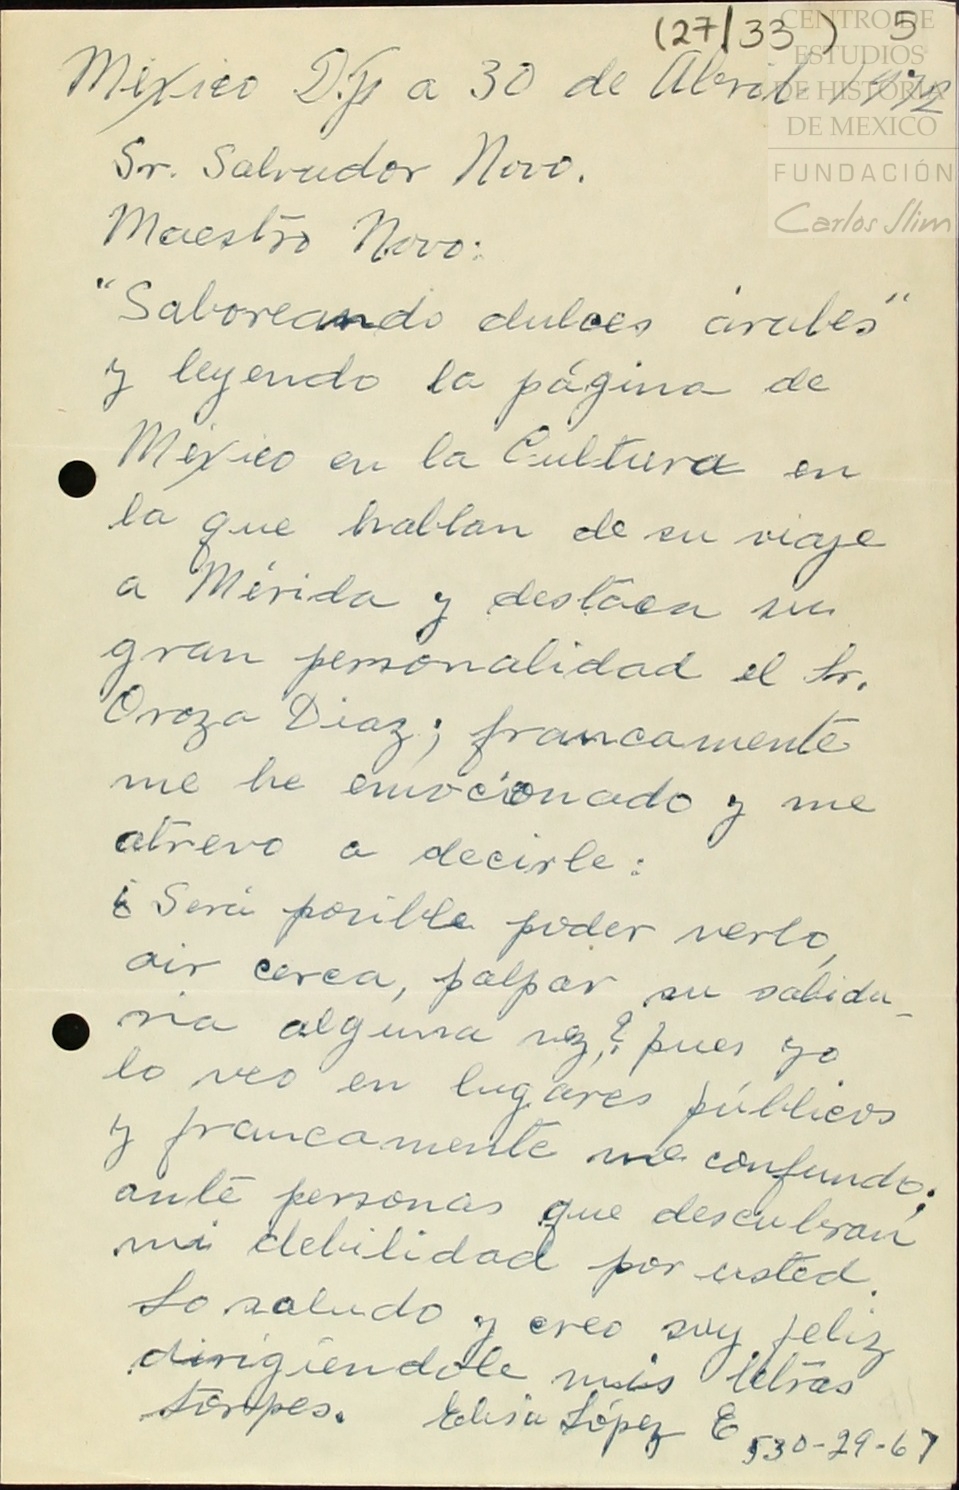 (27/33) 5
CENTRO DE
ESTUDIOS
DE HISTORIA
DE MEXICO
FUNDACIÓN
Carlos Slim
México D.F. a 30 de Abril 1972
Sr. Salvador Novo.
Maestro Novo:
"Saboreando dulces árabes"
y leyendo la página de
México en la Cultura en
la que hablan de su viaje
a Mérida y destaca su
gran personalidad el Sr.
Oroza Diaz; francamente
me he emocionado y me
atrevo a decirle:
¿Será posible poder verlo,
oir cerca, palpar su sabidu-
ria alguna vez,? pues yo
lo veo en lugares públicos
y francamente me confundo;
ante personas que descubran
mi debilidad por usted.
Lo saludo y creo soy feliz
dirigiéndole mis letras
torpes. Elisa López E
530-29-67